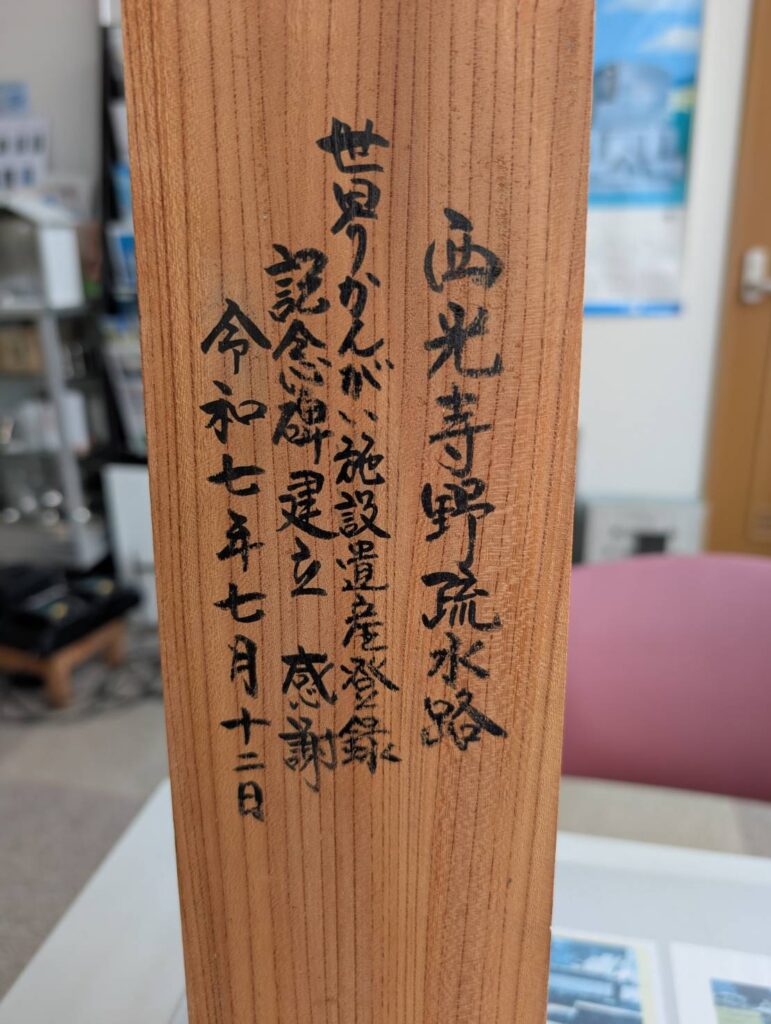 西光寺野疏水路
世界りかんがい施設遺産登録
記念碑建立 感謝
令和七年七月十二日